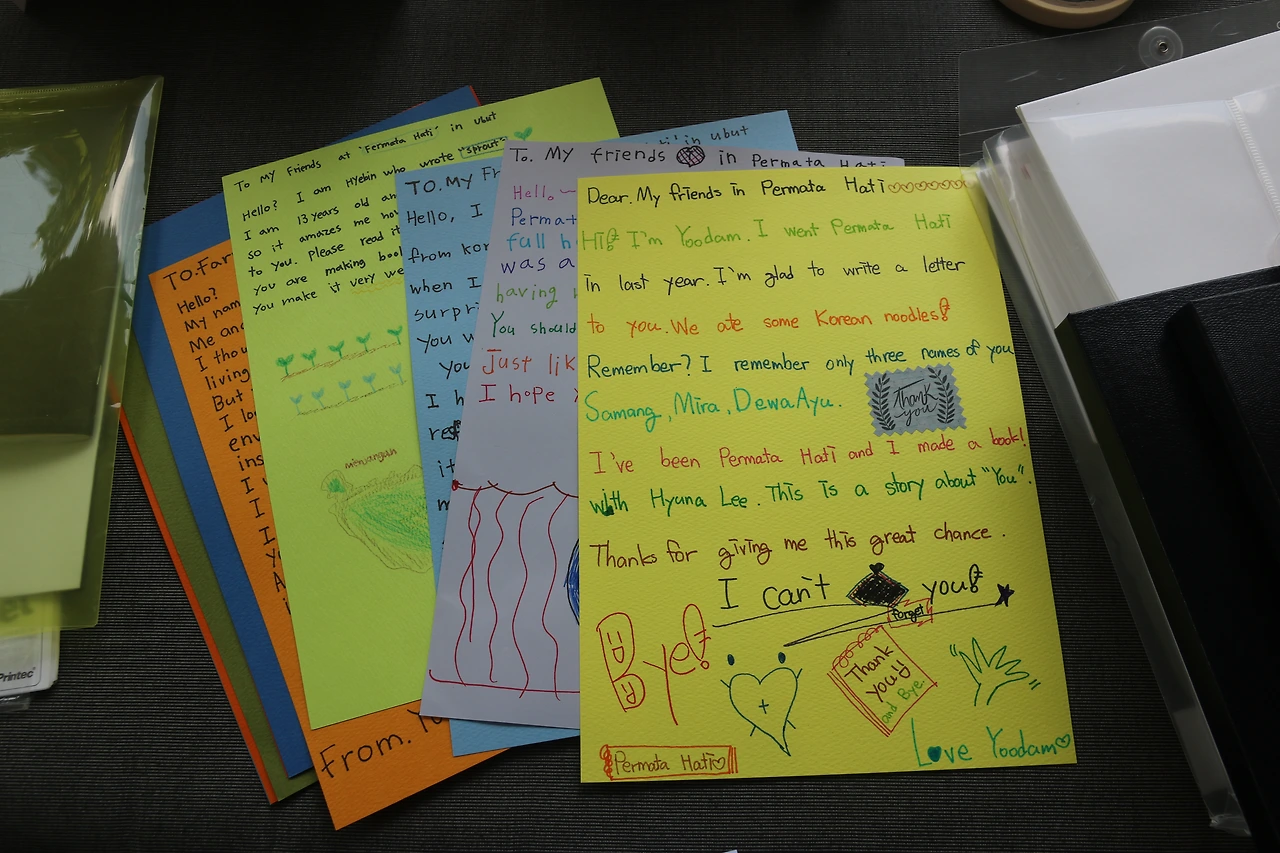 To MY Friends at "Fermata Hati" in Ubut
Hello? I am HYebin who wrote "sprout"
I am 13 years old an
so it amazes me ho
to you. Please read it
you are making bool
You make it very we
minyanguih
TO. Far
Hello?
My nam
Me and
I thou
living
But
I lo
env
ins
I
I
I
From. Yo
TO. MY Fr
ti" in ubut
Hello, I
from kor
when I
surpri
you w
you
I h
it
m
To. MY friends in Permata Hati
Hello ~
Permat
full h
was a
having
You should
Just lik
I hope
Dear. My friends in Permata Hati♡♡♡♡♡♡♡
Hi! I'm Yoodam. I went Permata Hati
in last year. I'm glad to write a letter
to you. We ate some Korean noodles!
Remember? I remember only three names of you
Samang, Mira, DewaAyu.
Thank
you
I've been Permata Hati and I made a book!
with Hyuna Lee. This is a story about "You".
Thanks for giving me this great chance.
I can't you!
forget
Bye!
Thank
you!
and Bye.
Permata Hati♡
Love Yoodam♡
Printec